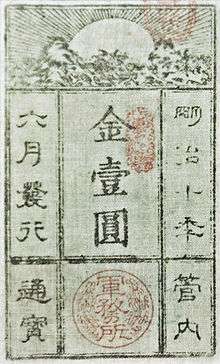 明治十年
金壹圓
六月發行
管内
通寶
軍務所